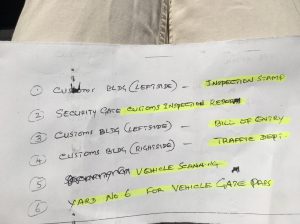 ① CUSTOM BLDG (LEFTSIDE) - INSPECTION STAMP
② SECURITY GATE CUSTOMS INSPECTION REPORT
③ CUSTOMS BLDG (LEFTSIDE) - BILL OF ENTRY
④ CUSTOMS BLDG (RIGHTSIDE) - TRAFFIC DEPT.
⑤ VEHICLE SCANNING
⑥ YARD NO 6 FOR VEHICLE GATE PASS